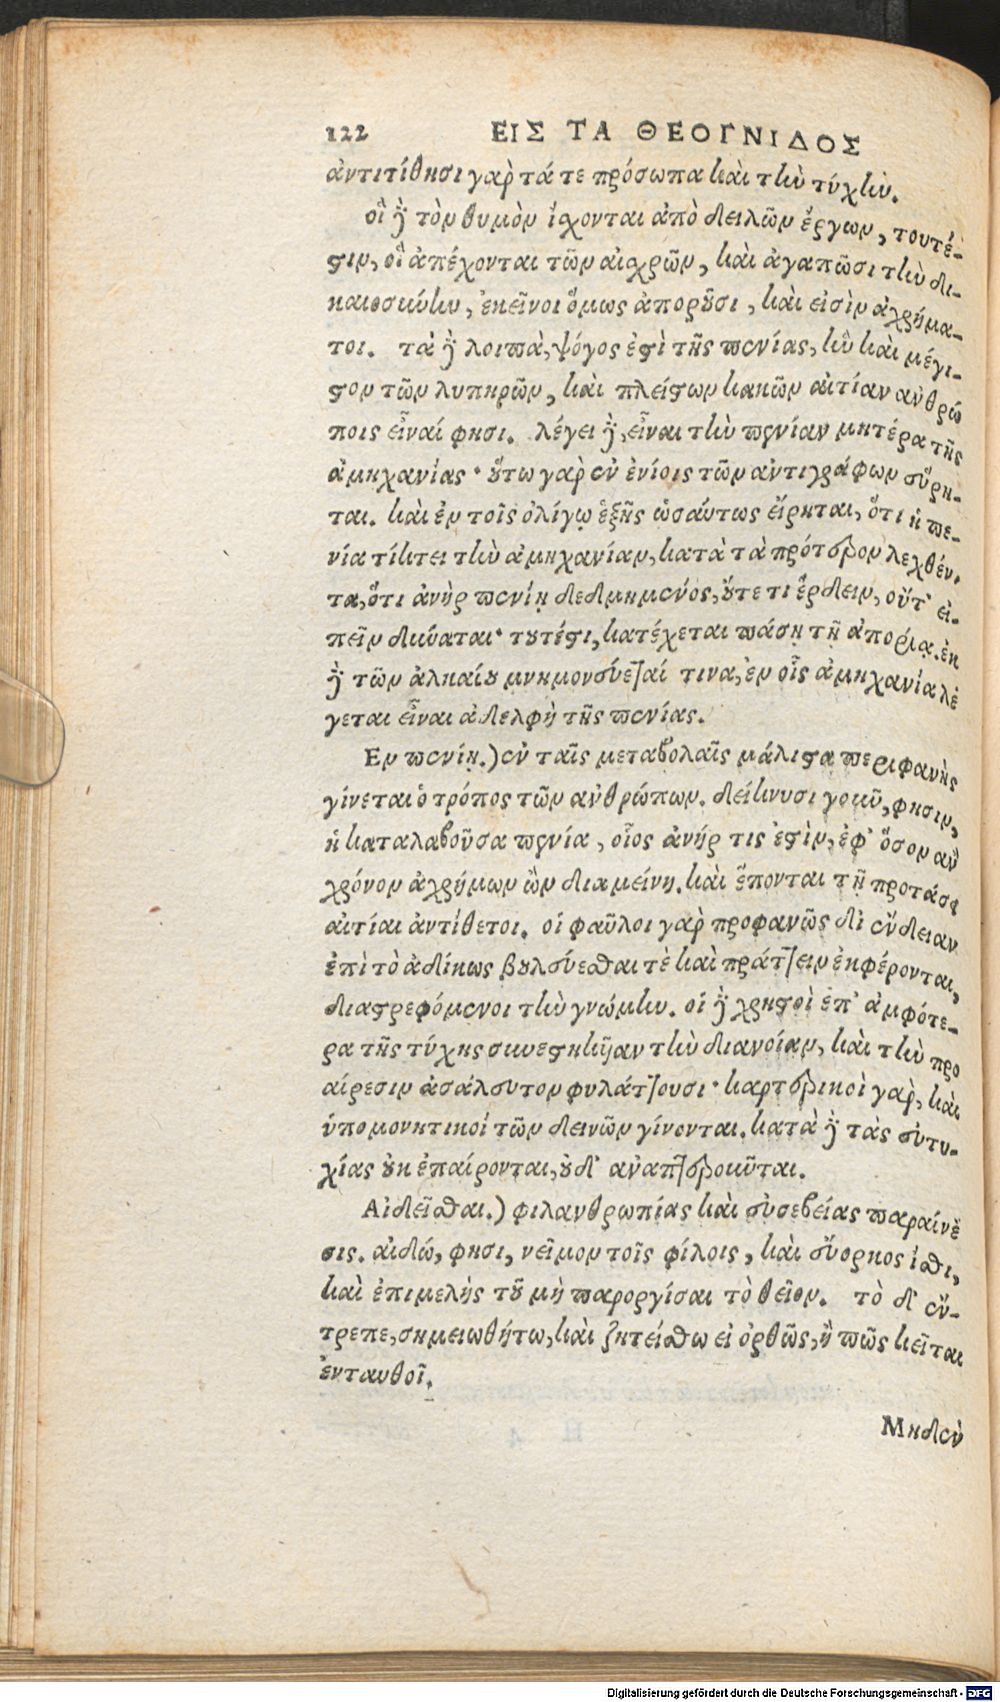 122 ΕΙΣ ΤΑ ΘΕΟΓΝΙΔΟΣ
ἀντιτίθησι γὰρ τά τε πρόσωπα καὶ τὴν τύχην.
οἳ δὲ τὸν θυμὸν ἴχονται ἀπὸ δειλῶν ἔργων, τουτέ-
στιν, οἳ ἀπέχονται τῶν αἰσχρῶν, καὶ ἀγαπῶσι τὴν δι-
καιοσύνην, ἐκεῖνοι ὅμως ἀποροῦσι, καὶ εἰσὶν ἀχρήμα-
τοι. τὰ δὲ λοιπὰ, ψόγος ἐστὶ τῆς πενίας, ἣν καὶ μέγι-
στον τῶν λυπηρῶν, καὶ πλείστων κακῶν αἰτίαν ἀνθρώ
ποις εἶναί φησι. λέγει δὲ, εἶναι τὴν πενίαν μητέρα τῆς
ἀμηχανίας· οὕτω γὰρ ἐν ἐνίοις τῶν ἀντιγράφων εὕρη-
ται. καὶ ἐν τοῖς ὀλίγῳ ἑξῆς ὡσαύτως εἴρηται, ὅτι ἡ πε-
νία τίκτει τὴν ἀμηχανίαν, κατὰ τὰ πρότερον λεχθέν-
τα, ὅτι ἀνὴρ πενίῃ δεδμημένος, οὔτε τι ἕρδειν, οὔτ' εἰ-
πεῖν δύναται· τουτέστι, κατέχεται πάσῃ τῇ ἀπορίᾳ. ἐκ
δὲ τῶν ἀλκαίου μνημονεύεταί τινα, ἐν οἷς ἀμηχανία λέ
γεται εἶναι ἀδελφὴ τῆς πενίας.
Εν πενίῃ.) ἐν ταῖς μεταβολαῖς μάλιστα περιφανὴς
γίνεται ὁ τρόπος τῶν ἀνθρώπων. δείκνυσι γοῦν, φησιν,
ἡ καταλαβοῦσα πενία, οἷος ἀνήρ τις ἐστὶν, ἐφ' ὅσον ἂν
χρόνον ἀχρήμων ὢν διαμείνῃ. καὶ ἕπονται τῇ προτάσει
αἰτίαι ἀντίθετοι. οἱ φαῦλοι γὰρ προφανῶς δι' ἔνδειαν
ἐπὶ τὸ ἀδίκως βουλεύεσθαι τὲ καὶ πράττειν ἐκφέρονται,
διαστρεφόμενοι τὴν γνώμην. οἱ δὲ χρηστοὶ ἐπ' ἀμφότε-
ρα τῆς τύχης συνεστηκυῖαν τὴν διανοίαν, καὶ τὴν προ
αίρεσιν ἀσάλευτον φυλάττουσι· καρτερικοὶ γὰρ, καὶ
ὑπομονητικοί τῶν δεινῶν γίνονται. κατὰ δὲ τὰς εὐτυ-
χίας οὐκ ἐπαίρονται, οὐδ' ἀναπτεροῦνται.
Αἰδεῖσθαι.) φιλανθρωπίας καὶ εὐσεβείας παραίνε
σις. αἰδώ, φησι, νεῖμον τοῖς φίλοις, καὶ εὔορκος ἴσθι,
καὶ ἐπιμελής τοῦ μὴ παροργίσαι τὸ θεῖον. τὸ δ' ἔν-
τρεπε, σημειωθήτω, καὶ ζητείσθω εἰ ὀρθῶς, ἢ πῶς κεῖται
ἐνταυθοῖ.
Μηδὲν
Digitalisierung gefördert durch die Deutsche Forschungsgemeinschaft - DFG